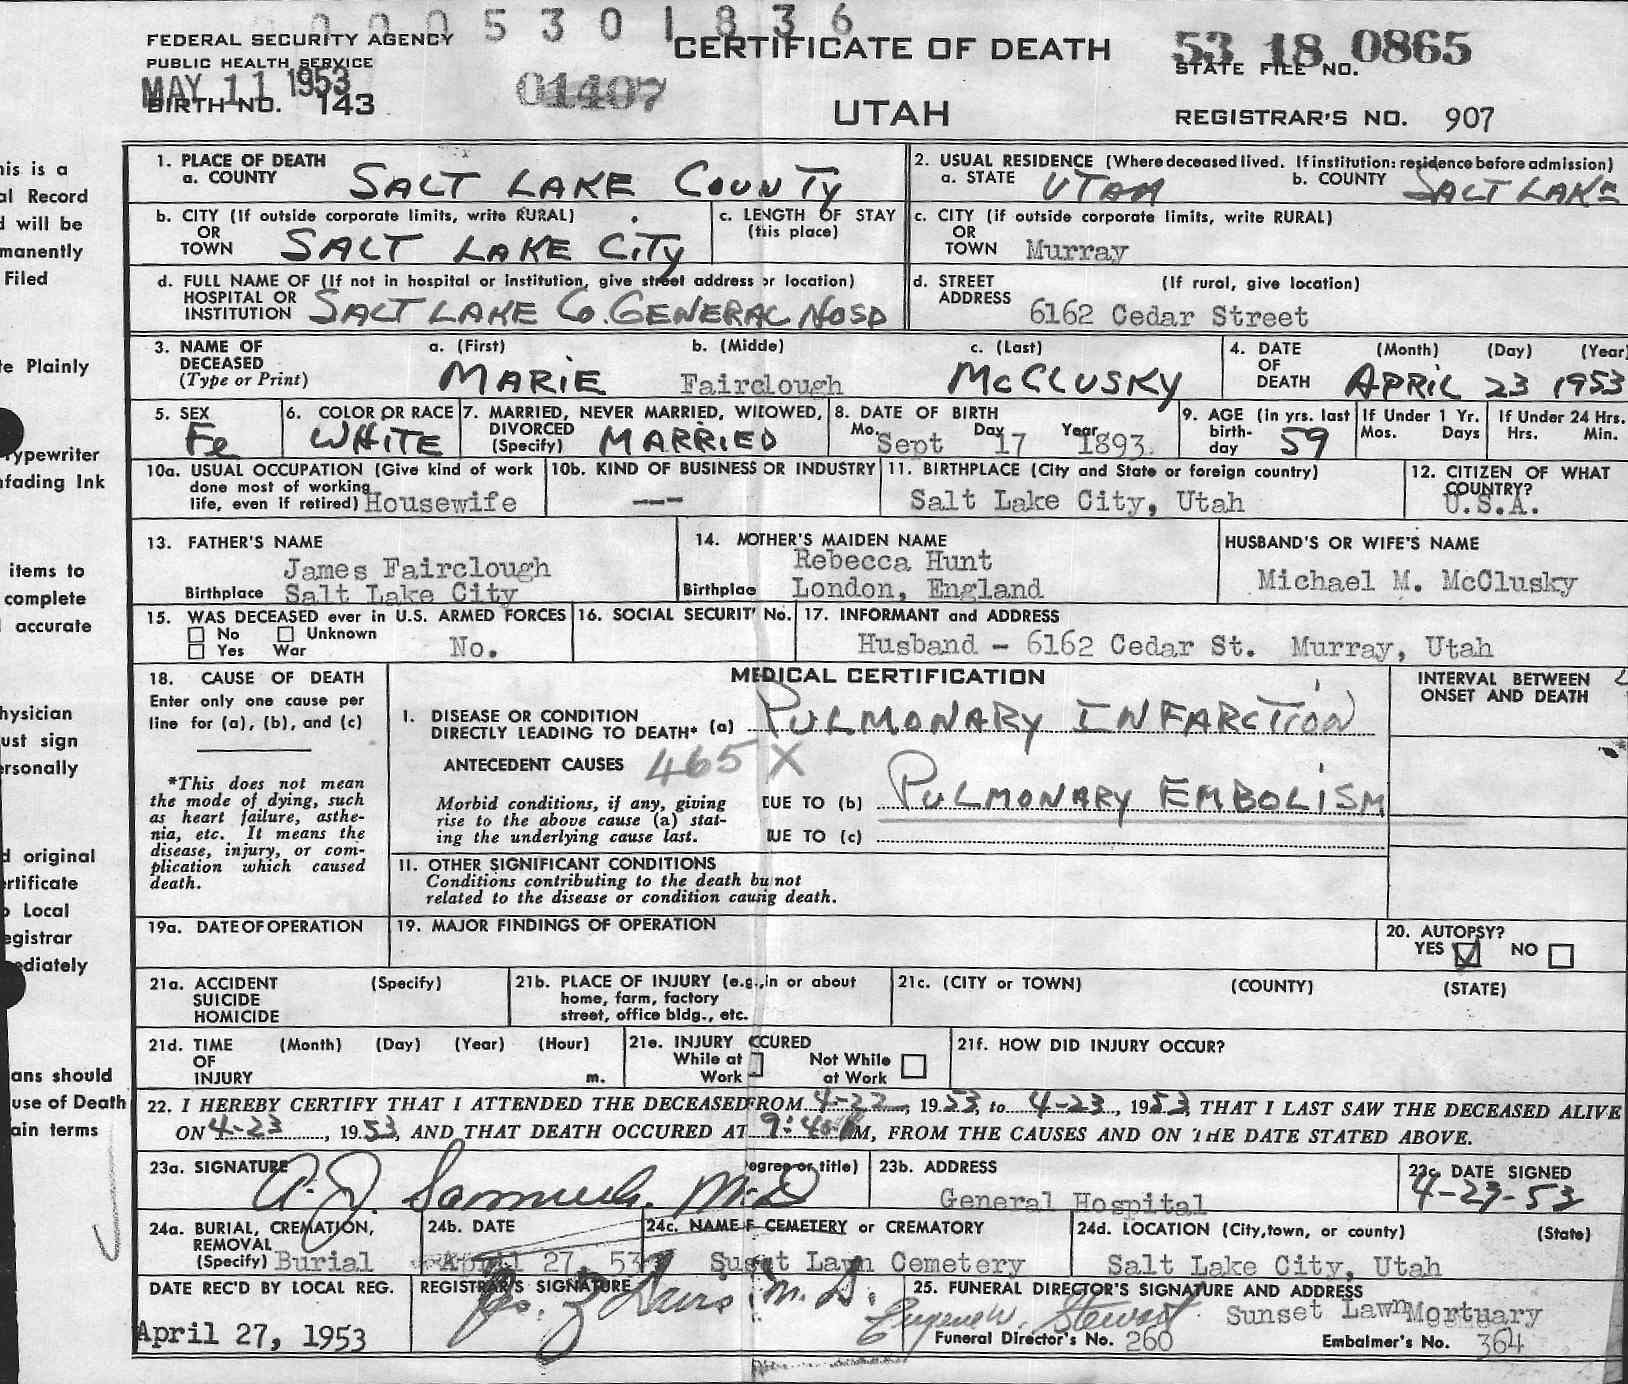 0 0 0 5 3 0 1 8 3 6
FEDERAL SECURITY AGENCY
PUBLIC HEALTH SERVICE
MAY 11 1953
BIRTH NO. 143
01407
CERTIFICATE OF DEATH
UTAH
53 18 0865
STATE FILE NO.
REGISTRAR'S NO. 907
his is a
al Record
d will be
manently
Filed
te Plainly
Typewriter
nfading Ink
items to
complete
accurate
hysician
ust sign
ersonally
d original
ertificate
o Local
egistrar
mediately
ans should
use of Death
ain terms
1. PLACE OF DEATH
a. COUNTY SALT LAKE COUNTY
2. USUAL RESIDENCE (Where deceased lived. If institution: residence before admission)
a. STATE UTAH b. COUNTY SALT LAKE
b. CITY (If outside corporate limits, write RURAL)
OR
TOWN SALT LAKE CITY
c. LENGTH OF STAY
(this place)
c. CITY (if outside corporate limits, write RURAL)
OR
TOWN Murray
d. FULL NAME OF (If not in hospital or institution, give street address or location)
HOSPITAL OR
INSTITUTION SALT LAKE Co. GENERAL HOSP
d. STREET (If rural, give location)
ADDRESS 6162 Cedar Street
3. NAME OF
DECEASED
(Type or Print)
a. (First) b. (Midde) c. (Last)
MARIE Fairclough McCLUSKY
4. DATE (Month) (Day) (Year)
OF
DEATH APRIL 23 1953
5. SEX
Fe
6. COLOR OR RACE
WHITE
7. MARRIED, NEVER MARRIED, WIDOWED,
DIVORCED
(Specify) MARRIED
8. DATE OF BIRTH
Mo. Sept Day 17 Year 1893
9. AGE (in yrs. last
birth-
day 59
If Under 1 Yr.
Mos. Days
If Under 24 Hrs.
Hrs. Min.
10a. USUAL OCCUPATION (Give kind of work
done most of working
life, even if retired) Housewife
10b. KIND OF BUSINESS OR INDUSTRY
---
11. BIRTHPLACE (City and State or foreign country)
Salt Lake City, Utah
12. CITIZEN OF WHAT
COUNTRY?
U.S.A.
13. FATHER'S NAME
James Fairclough
Birthplace Salt Lake City
14. MOTHER'S MAIDEN NAME
Rebecca Hunt
Birthplac London, England
HUSBAND'S OR WIFE'S NAME
Michael M. McClusky
15. WAS DECEASED ever in U.S. ARMED FORCES
No Unknown
Yes War No.
16. SOCIAL SECURIT' No.
17. INFORMANT and ADDRESS
Husband - 6162 Cedar St. Murray, Utah
18. CAUSE OF DEATH
Enter only one cause per
line for (a), (b), and (c)
*This does not mean
the mode of dying, such
as heart failure, asthe-
nia, etc. It means the
disease, injury, or com-
plication which caused
death.
MEDICAL CERTIFICATION
I. DISEASE OR CONDITION
DIRECTLY LEADING TO DEATH* (a) PULMONARY INFARCTION
ANTECEDENT CAUSES 465 X
Morbid conditions, if any, giving
rise to the above cause (a) stat-
ing the underlying cause last.
DUE TO (b) PULMONARY EMBOLISM
DUE TO (c)
II. OTHER SIGNIFICANT CONDITIONS
Conditions contributing to the death bu not
related to the disease or condition causig death.
INTERVAL BETWEEN
ONSET AND DEATH
19a. DATE OF OPERATION
19. MAJOR FINDINGS OF OPERATION
20. AUTOPSY?
YES NO
21a. ACCIDENT (Specify)
SUICIDE
HOMICIDE
21b. PLACE OF INJURY (e.g., in or about
home, farm, factory
street, office bldg., etc.
21c. (CITY or TOWN) (COUNTY) (STATE)
21d. TIME (Month) (Day) (Year) (Hour)
OF
INJURY m.
21e. INJURY CCURED
While at Not While
Work at Work
21f. HOW DID INJURY OCCUR?
22. I HEREBY CERTIFY THAT I ATTENDED THE DECEASED FROM 4-22, 1953, to 4-23, 1953, THAT I LAST SAW THE DECEASED ALIVE
ON 4-23, 1953, AND THAT DEATH OCCURED AT 9:40 M, FROM THE CAUSES AND ON THE DATE STATED ABOVE.
23a. SIGNATURE egree or title)
M.D
23b. ADDRESS
General Hospital
23c. DATE SIGNED
4-27-53
24a. BURIAL, CREMATION,
REMOVAL
(Specify) Burial
24b. DATE
April 27, 53
24c. NAME F CEMETERY or CREMATORY
Suset Lawn Cemetery
24d. LOCATION (City, town, or county) (State)
Salt Lake City, Utah
DATE REC'D BY LOCAL REG.
April 27, 1953
REGISTRAR'S SIGNATURE
M.D.
25. FUNERAL DIRECTOR'S SIGNATURE AND ADDRESS
Eugene W. Stewart Sunset Lawn Mortuary
Funeral Director's No. 260 Embalmer's No. 364